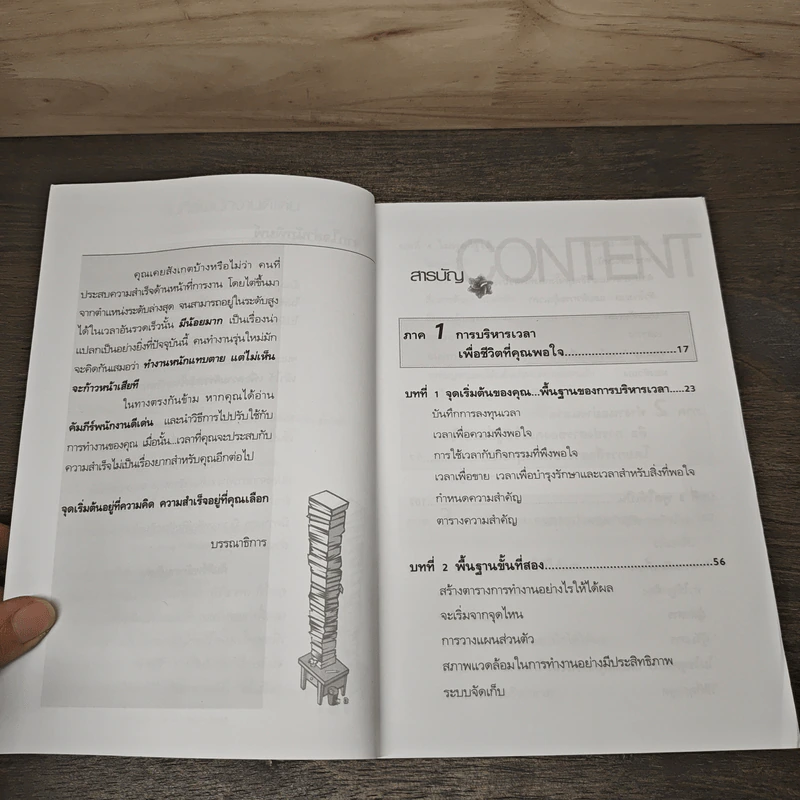 คุณเคยสังเกตบ้างหรือไม่ว่า คนที่
ประสบความสำเร็จด้านหน้าที่การงาน โดยไต่ขึ้นมา
จากตำแหน่งระดับล่างสุด จนสามารถอยู่ในระดับสูง
ได้ในเวลาอันรวดเร็วนั้น มีน้อยมาก เป็นเรื่องน่า
แปลกเป็นอย่างยิ่งที่ปัจจุบันนี้ คนทำงานรุ่นใหม่มัก
จะคิดกันเสมอว่า ทำงานหนักแทบตาย แต่ไม่เห็น
จะก้าวหน้าเสียที
ในทางตรงกันข้าม หากคุณได้อ่าน
คัมภีร์พนักงานดีเด่น และนำวิธีการไปปรับใช้กับ
การทำงานของคุณ เมื่อนั้น...เวลาที่คุณจะประสบกับ
ความสำเร็จไม่เป็นเรื่องยากสำหรับคุณอีกต่อไป
จุดเริ่มต้นอยู่ที่ความคิด ความสำเร็จอยู่ที่คุณเลือก
บรรณาธิการ
CONTENT
สารบัญ
ภาค 1 การบริหารเวลา
เพื่อชีวิตที่คุณพอใจ................................17
บทที่ 1 จุดเริ่มต้นของคุณ...พื้นฐานของการบริหารเวลา.....23
บันทึกการลงทุนเวลา
เวลาเพื่อความพึงพอใจ
การใช้เวลากับกิจกรรมที่พึงพอใจ
เวลาเพื่อขาย เวลาเพื่อบำรุงรักษาและเวลาสำหรับสิ่งที่พอใจ
กำหนดความสำคัญ
ตารางความสำคัญ
บทที่ 2 พื้นฐานขั้นที่สอง.................................................56
สร้างตารางการทำงานอย่างไรให้ได้ผล
จะเริ่มจากจุดไหน
การวางแผนส่วนตัว
สภาพแวดล้อมในการทำงานอย่างมีประสิทธิภาพ
ระบบจัดเก็บ